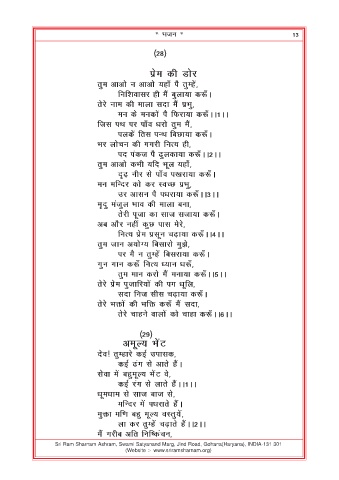 * भजन *
13
(28)
प्रेम की डोर
तुम आओ न आओ यहाँ पै तुम्हें,
निशिवासर ही मैं बुलाया करूँ।
तेरे नाम की माला सदा मैं प्रभु,
मन के मनकों पै फिराया करूँ।।1।।
जिस पथ पर पाँव धरो तुम मैं,
पलकें तिस पन्थ बिछाया करूँ।
भर लोचन की गगरी नित्य ही,
पद पंकज पै ढुलकाया करूँ।।2।।
तुम आओ कभी यदि भूल यहाँ,
दृढ़ नीर से पाँव पखराया करूँ।
मन मन्दिर को कर स्वच्छ प्रभु,
उर आसन पै पधराया करूँ।।3।।
मृदु मंजुल भाव की माला बना,
तेरी पूजा का साज सजाया करूँ।
अब और नहीं कुछ पास मेरे,
नित्य प्रेम प्रसून चढ़ाया करूँ।।4।।
तुम जान अयोग्य बिसारो मुझे,
पर मैं न तुम्हें बिसराया करूँ।
गुन गान करूँ नित्य ध्यान धरूँ,
तुम मान करो मैं मनाया करूँ।।5।।
तेरे प्रेम पुजारियों की पग धूलि,
सदा निज सीस चढ़ाया करूँ।
तेरे भक्तों की भक्ति करूँ मैं सदा,
तेरे चाहने वालों को चाहा करूँ।।6।।
(29)
अमूल्य भेंट
देव! तुम्हारे कई उपासक,
कई ढंग से आते हैं।
सेवा में बहुमूल्य भेंट वे,
कई रंग से लाते हैं।।1।।
धूमधाम से साज बाज से,
मन्दिर में पधराते हैं।
मुक्ता मणि बहु मूल्य वस्तुयें,
ला कर तुम्हें चढ़ाते हैं।।2।।
मैं गरीब अति निष्किंचन,
Sri Ram Sharnam Ashram, Swami Satyanand Marg, Jind Road, Gohana(Haryana), INDIA-131 301
(Website :- www.sriramsharnam.org)